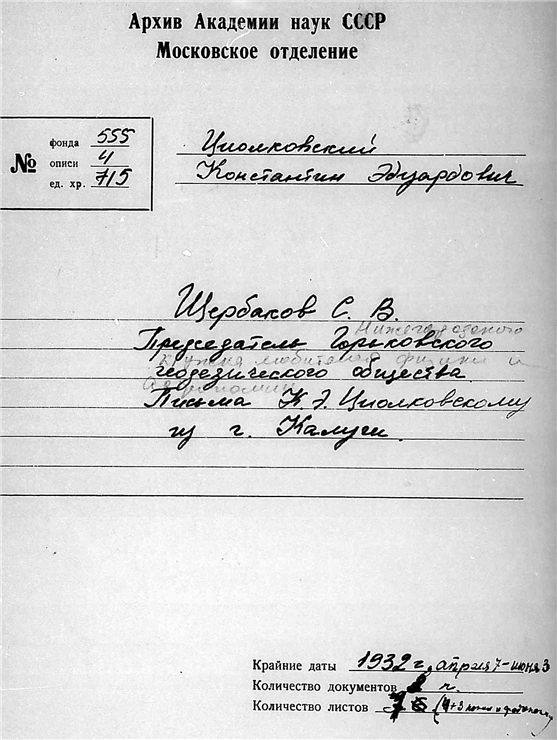 Архив Академии наук СССР
Московское отделение
№
фонда 555
описи 4
ед. хр. 715
Циолковский
Константин Эдуардович
Щербаков С. В.
Нижегородского
Председатель Горьковского
кружка любителей физики и
геодезического общества.
астрономии
Письма К. Э. Циолковскому
из г. Калуги.
Крайние даты 1932 г. апреля 7 - июня 3
Количество документов
Количество листов